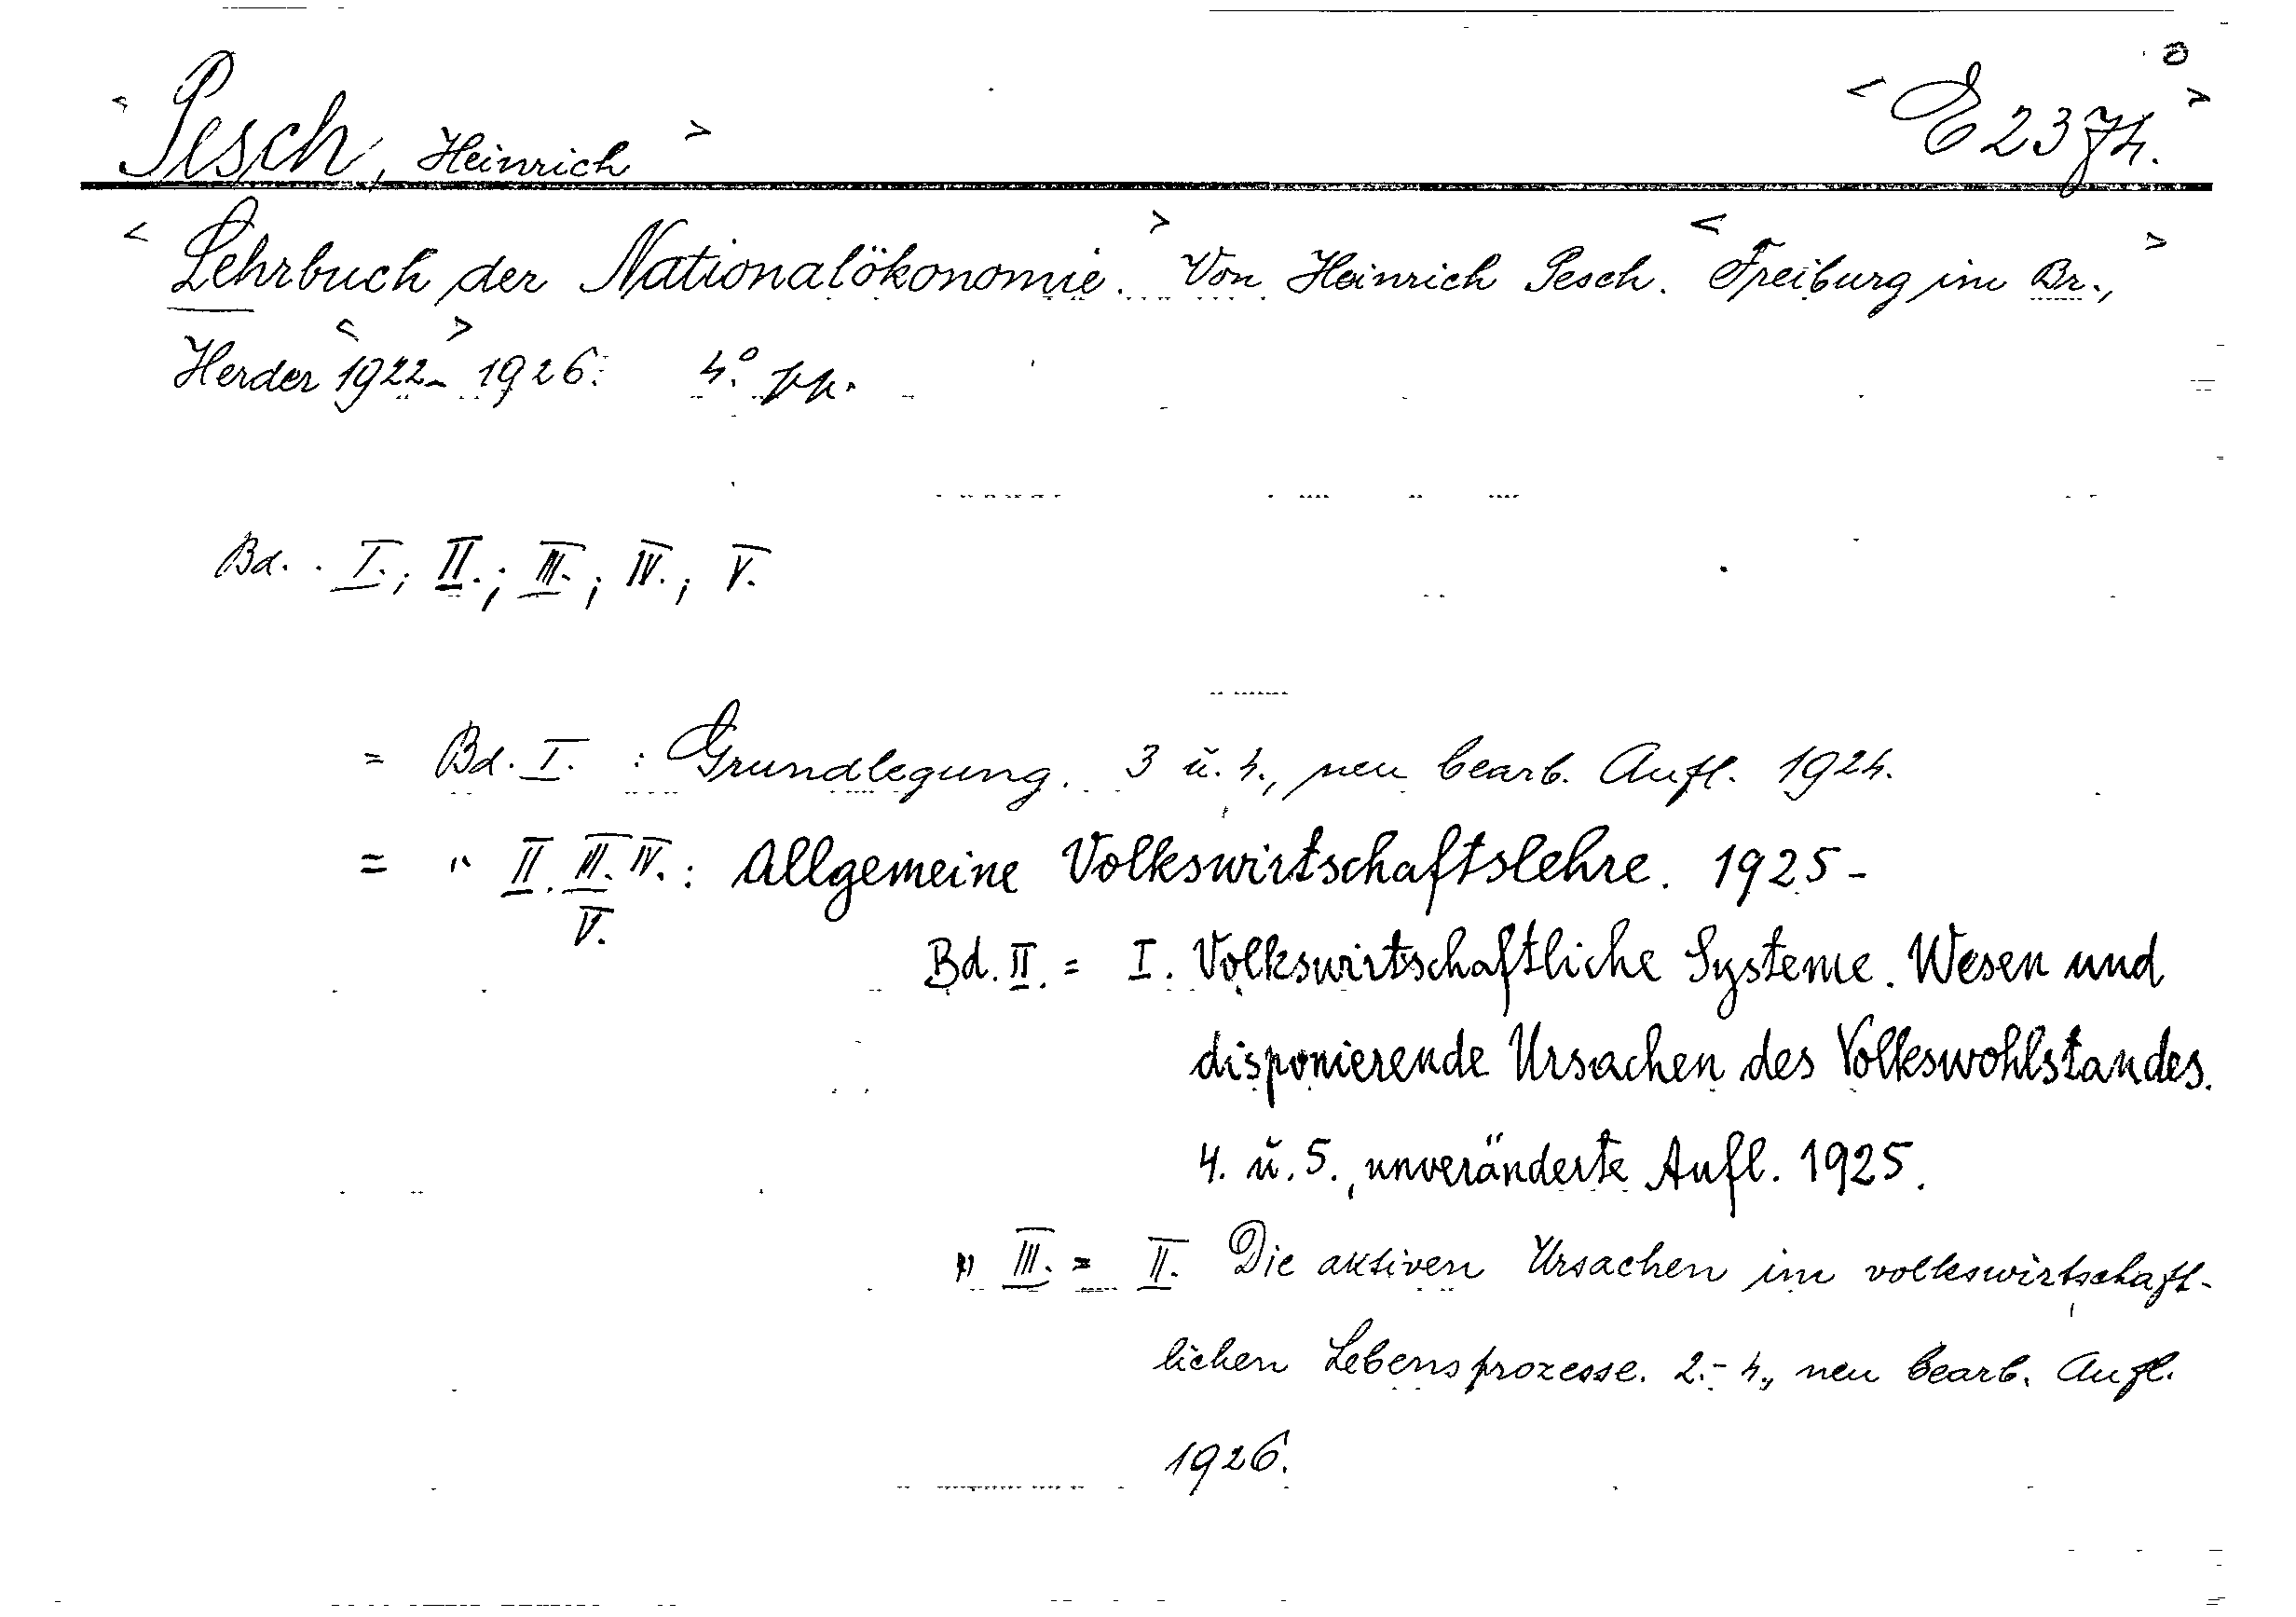 < Pesch, Heinrich > < E 2374. >
< Lehrbuch der Nationalökonomie. > Von Heinrich Pesch. < Freiburg im Br., >
Herder < 1922- > 1926. 4°.
Bd. I.; II.; III.; IV.; V.
= Bd. I. : Grundlegung. 3 ŭ. 4., neu bearb. Aufl. 1924.
= " II. III. IV. : Allgemeine Volkswirtschaftslehre. 1925-
V.
Bd. II. = I. Volkswirtschaftliche Systeme. Wesen und
disponierende Ursachen des Volkswohlstandes.
4. ŭ. 5., unveränderte Aufl. 1925.
" III. = II. Die aktiven Ursachen im volkswirtschaft-
lichen Lebensprozesse. 2.-4., neu bearb. Aufl.
1926.